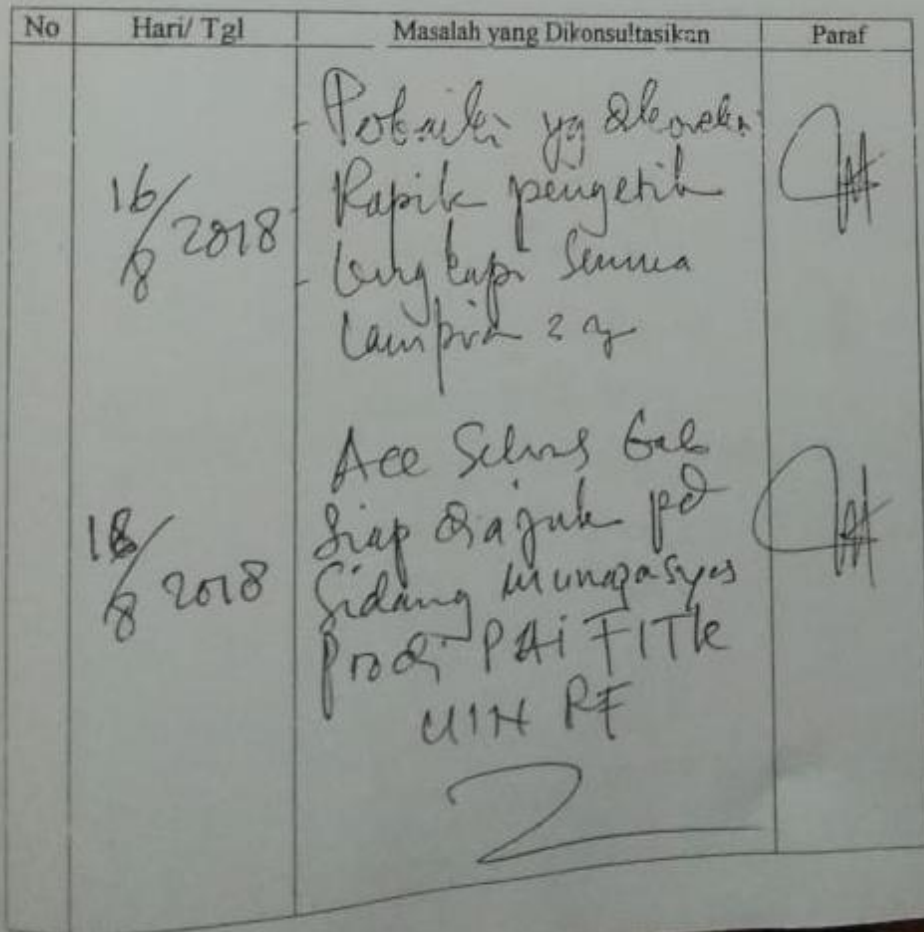 No Hari/ Tgl Masalah yang Dikonsultasikan Paraf
- Perbaiki yg dikoreksi
16/8 2018 - Rapik pengetik
- Lengkapi Semua
Lampiran 2 ny
Acc Selurus Bab
18/8 2018 Siap diajuk pd
Sidang Munaqasyas
Prodi PAi FITK
UIN RF